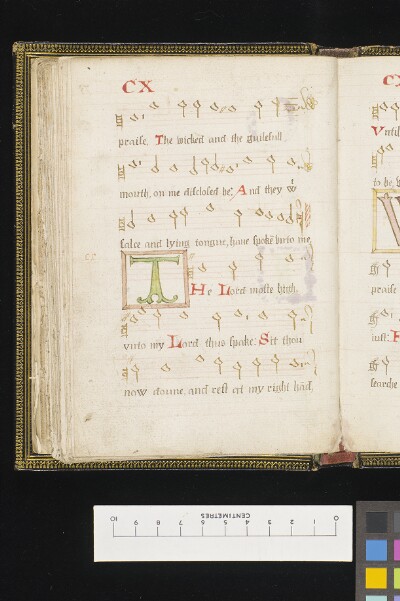 CX
praise. The wicked and the guilefull
mouth, on me disclosed be; And they wt
false and lying tongue, have spoke unto me
THe Lord moste high.
vnto my Lord thus spake: Sit thou
now doune, and rest at my right hād,
CX
Vntil
to be,
W
praise
iust: F
searche
10 9 8 7 6 5 4 3 2 1 0
CENTIMETRES